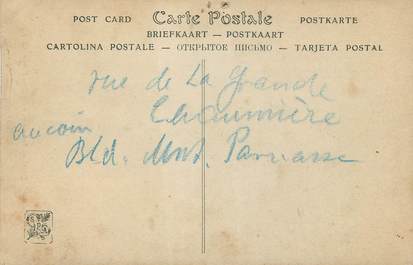 POST CARD Carte Postale POSTKARTE
BRIEFKAART — POSTKAART
CARTOLINA POSTALE — ОТКРЫТОЕ ПИСЬМО — TARJETA POSTAL
rue de La Grande
Chaumière
au coin
Bld. Mont. Parnasse